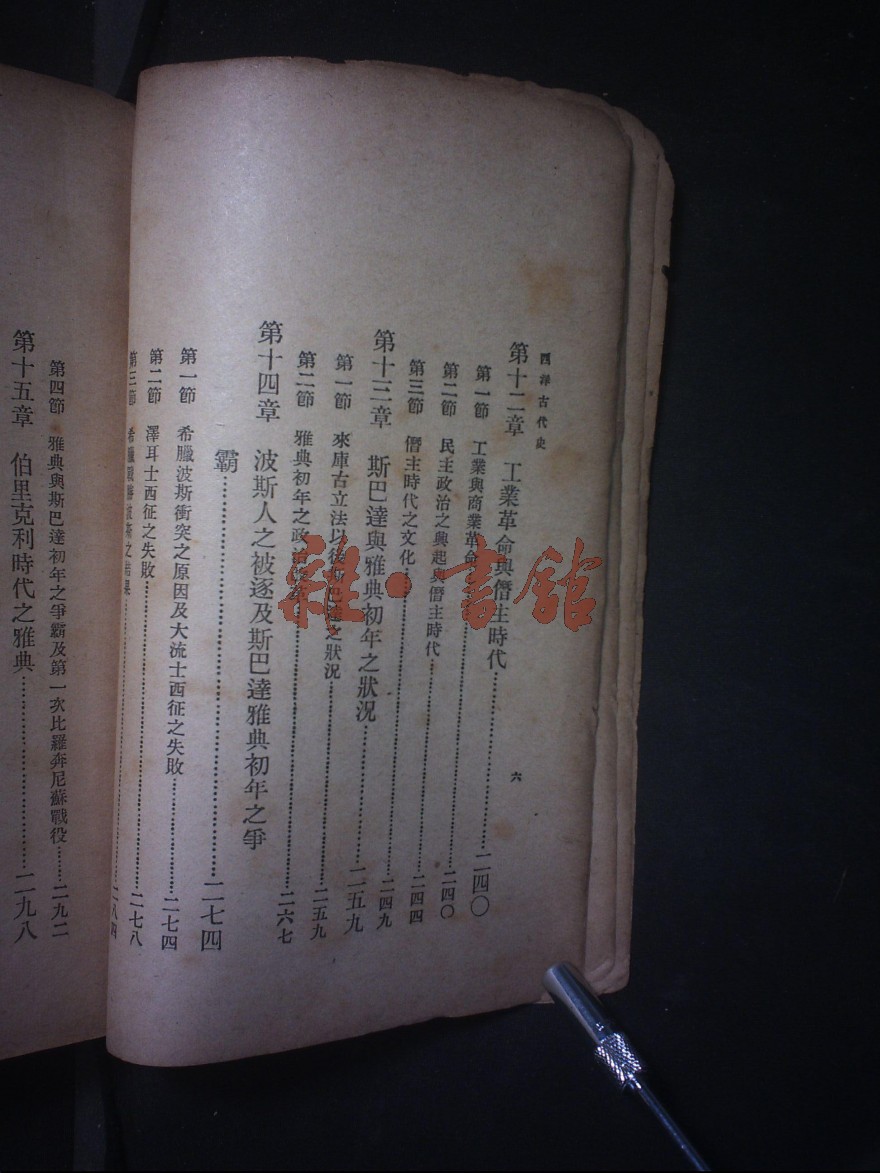 西洋古代史
六
第十二章 工業革命與僭主時代……二四〇
第一節 工業與商業革命……二四〇
第二節 民主政治之興起與僭主時代……二四四
第三節 僭主時代之文化……二四九
第十三章 斯巴達與雅典初年之狀況……二五九
第一節 來庫古立法以後斯巴達之狀況……二五九
第二節 雅典初年之政治……二六七
第十四章 波斯人之被逐及斯巴達雅典初年之爭
霸……二七四
第一節 希臘波斯衝突之原因及大流士西征之失敗……二七四
第二節 澤耳士西征之失敗……二七八
第三節 希臘戰勝波斯之結果……二八四
第四節 雅典與斯巴達初年之爭霸及第一次比羅奔尼蘇戰役……二九二
第十五章 伯里克利時代之雅典……二九八
雜·書館